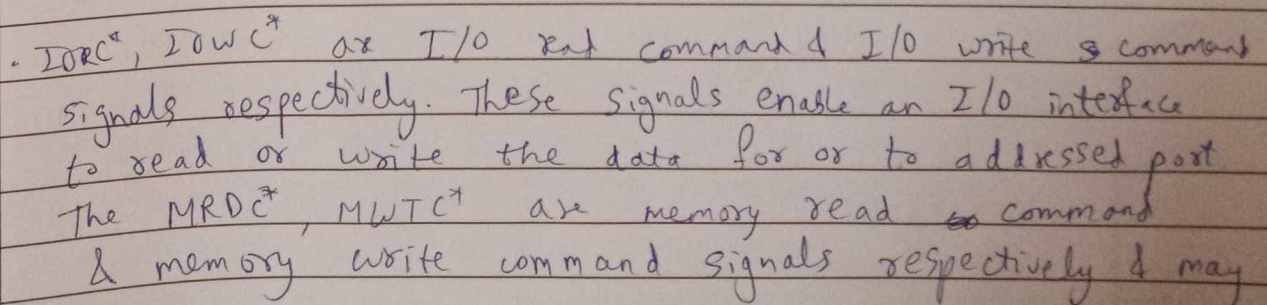 . IORC*, IOWC* are I/O read command & I/O write command
signals respectively. These signals enable an I/O interface
to read or write the data for or to addressed port
The MRDC*, MWTC* are memory read command
& memory write command signals respectively & may